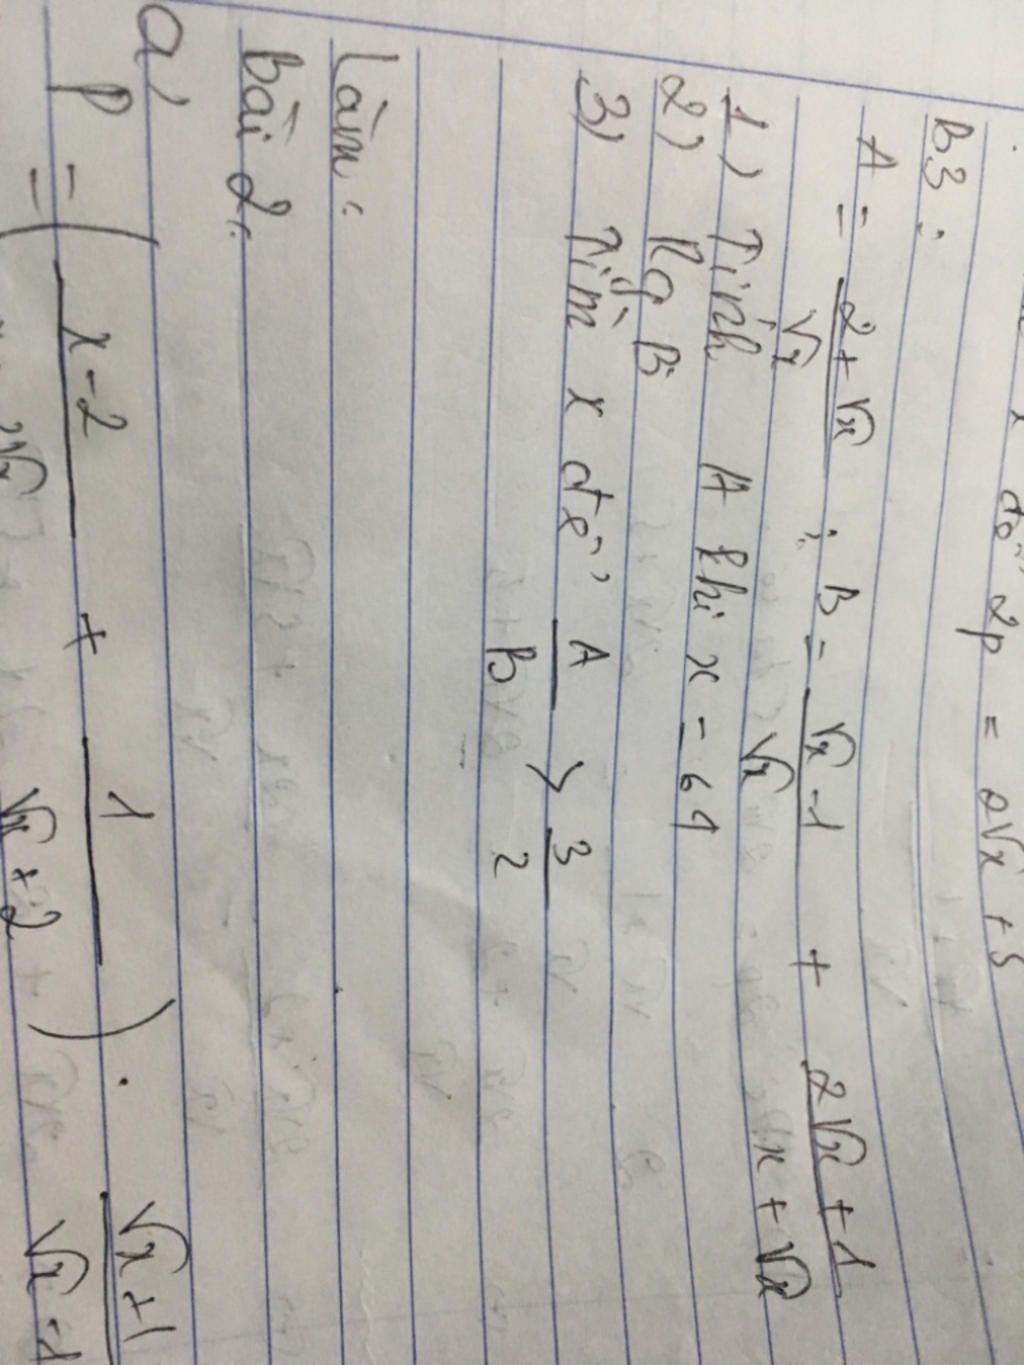 để 2P = 2√x + 5
B3:
A = (2 + √x)/√x ; B = (√x - 1)/√x + (2√x + 1)/(x + √x)
1) Tính A khi x = 64
2) Rg B
3) Tìm x để A/B > 3/2
Làm:
bài 2:
a)
P = ( (x - 2)/(x + 2√x) + 1/(√x + 2) ) . (√x + 1)/(√x - 1)
=